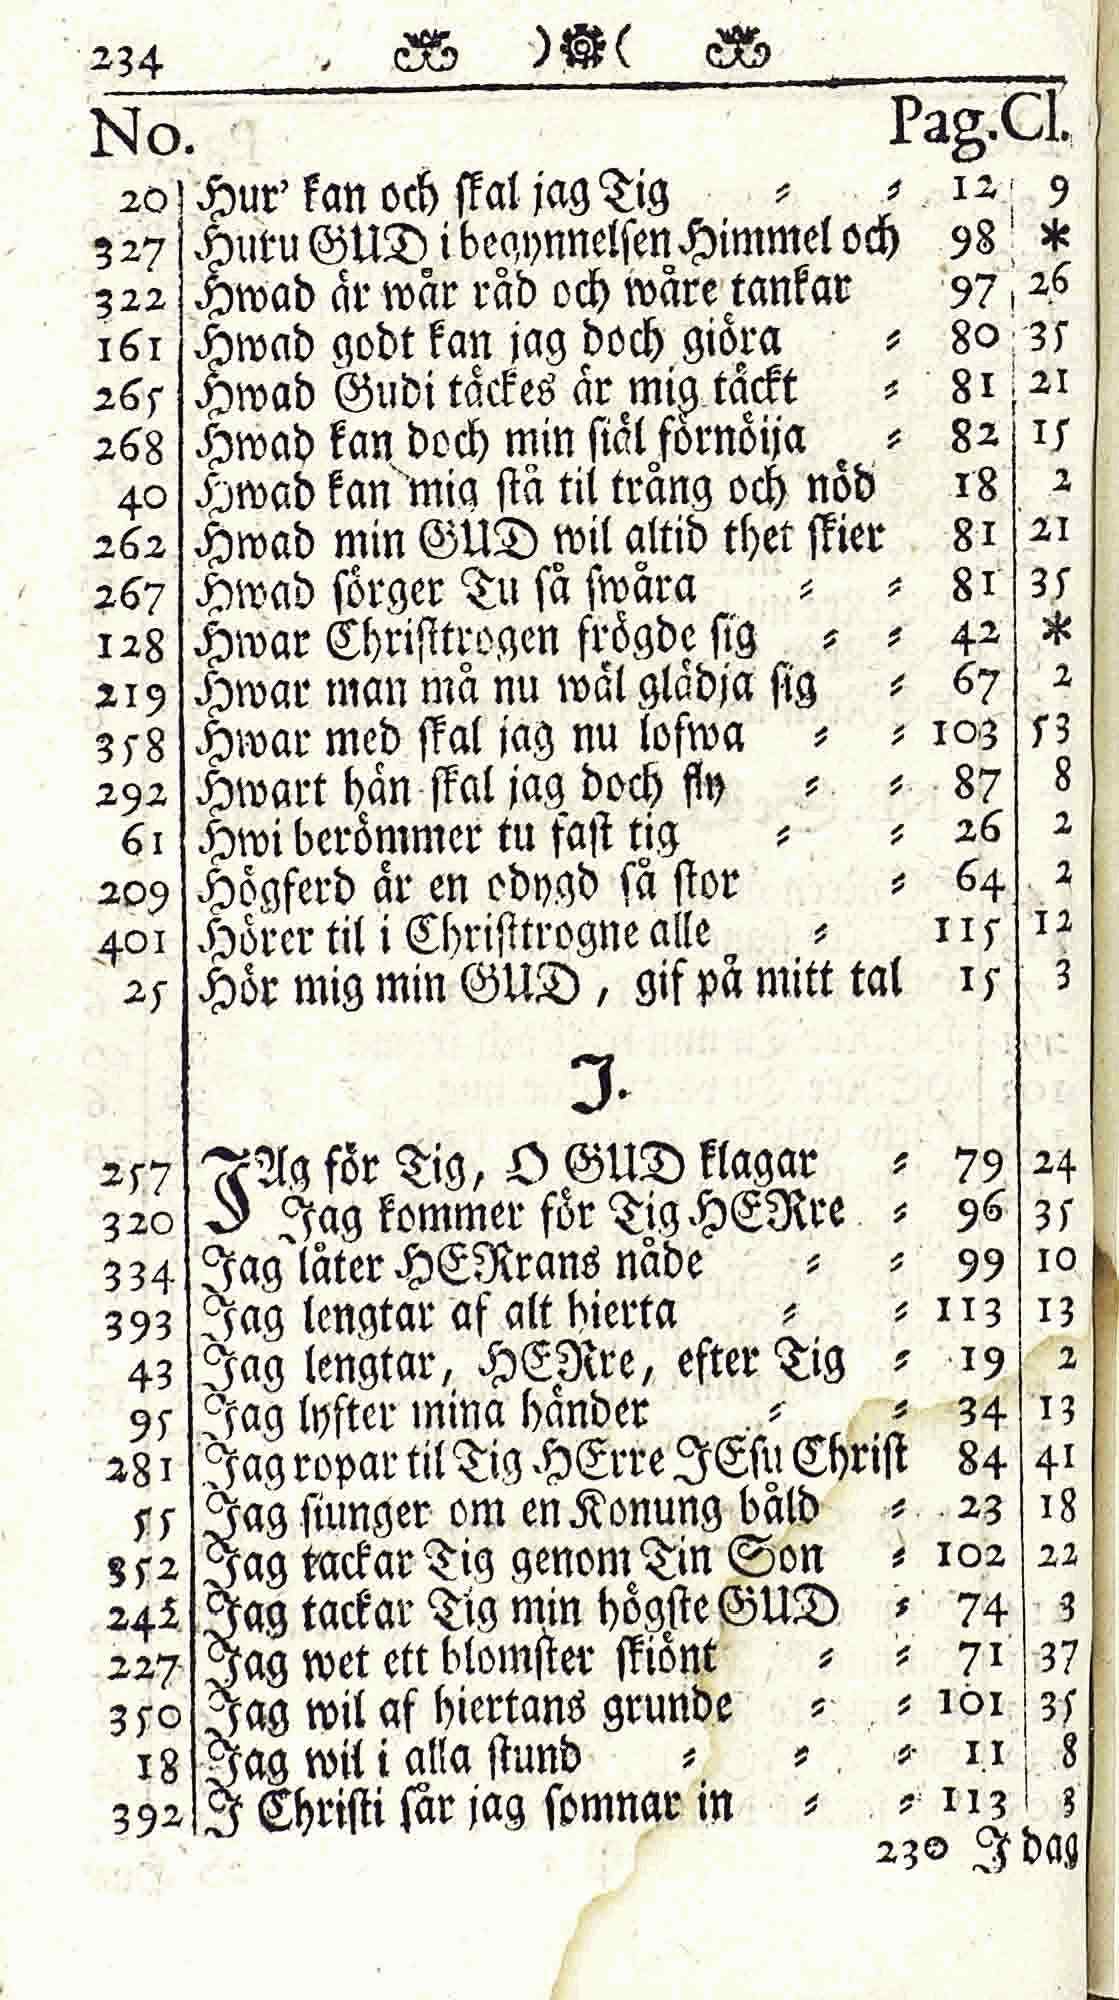 234 ) ( 
No. Pag. Cl.
20 Hur' kan och skal jag Tig 12 9
327 Huru GUD i begynnelsen Himmel och 98 *
322 Hwad är wår råd och wåre tankar 97 26
161 Hwad godt kan jag doch giöra 80 35
265 Hwad Gudi täckes är mig täckt 81 21
268 Hwad kan doch min siäl förnöija 82 15
40 Hwad kan mig stå til trång och nöd 18 2
262 Hwad min GUD wil altid thet skier 81 21
267 Hwad sörger Tu så swåra 81 35
128 Hwar Christtrogen frögde sig 42 *
219 Hwar man må nu wäl glädja sig 67 2
358 Hwar med skal jag nu lofwa 103 53
292 Hwart hän skal jag doch fly 87 8
61 Hwi berömmer tu fast tig 26 2
209 Högferd är en odygd så stor 64 2
401 Hörer til i Christtrogne alle 115 12
25 Hör mig min GUD, gif på mitt tal 15 3
J.
257 JAg för Tig, O GUD klagar 79 24
320 Jag kommer för Tig HERre 96 35
334 Jag låter HERrans nåde 99 10
393 Jag lengtar af alt hierta 113 13
43 Jag lengtar, HERre, efter Tig 19 2
95 Jag lyfter mina händer 34 13
281 Jag ropar til Tig HErre JEsu Christ 84 41
55 Jag siunger om en Konung båld 23 18
352 Jag tackar Tig genom Tin Son 102 22
242 Jag tackar Tig min högste GUD 74 3
227 Jag wet ett blomster skiönt 71 37
350 Jag wil af hiertans grunde 101 35
18 Jag wil i alla stund 11 8
392 J Christi sår jag somnar in 113 3
230 J dag